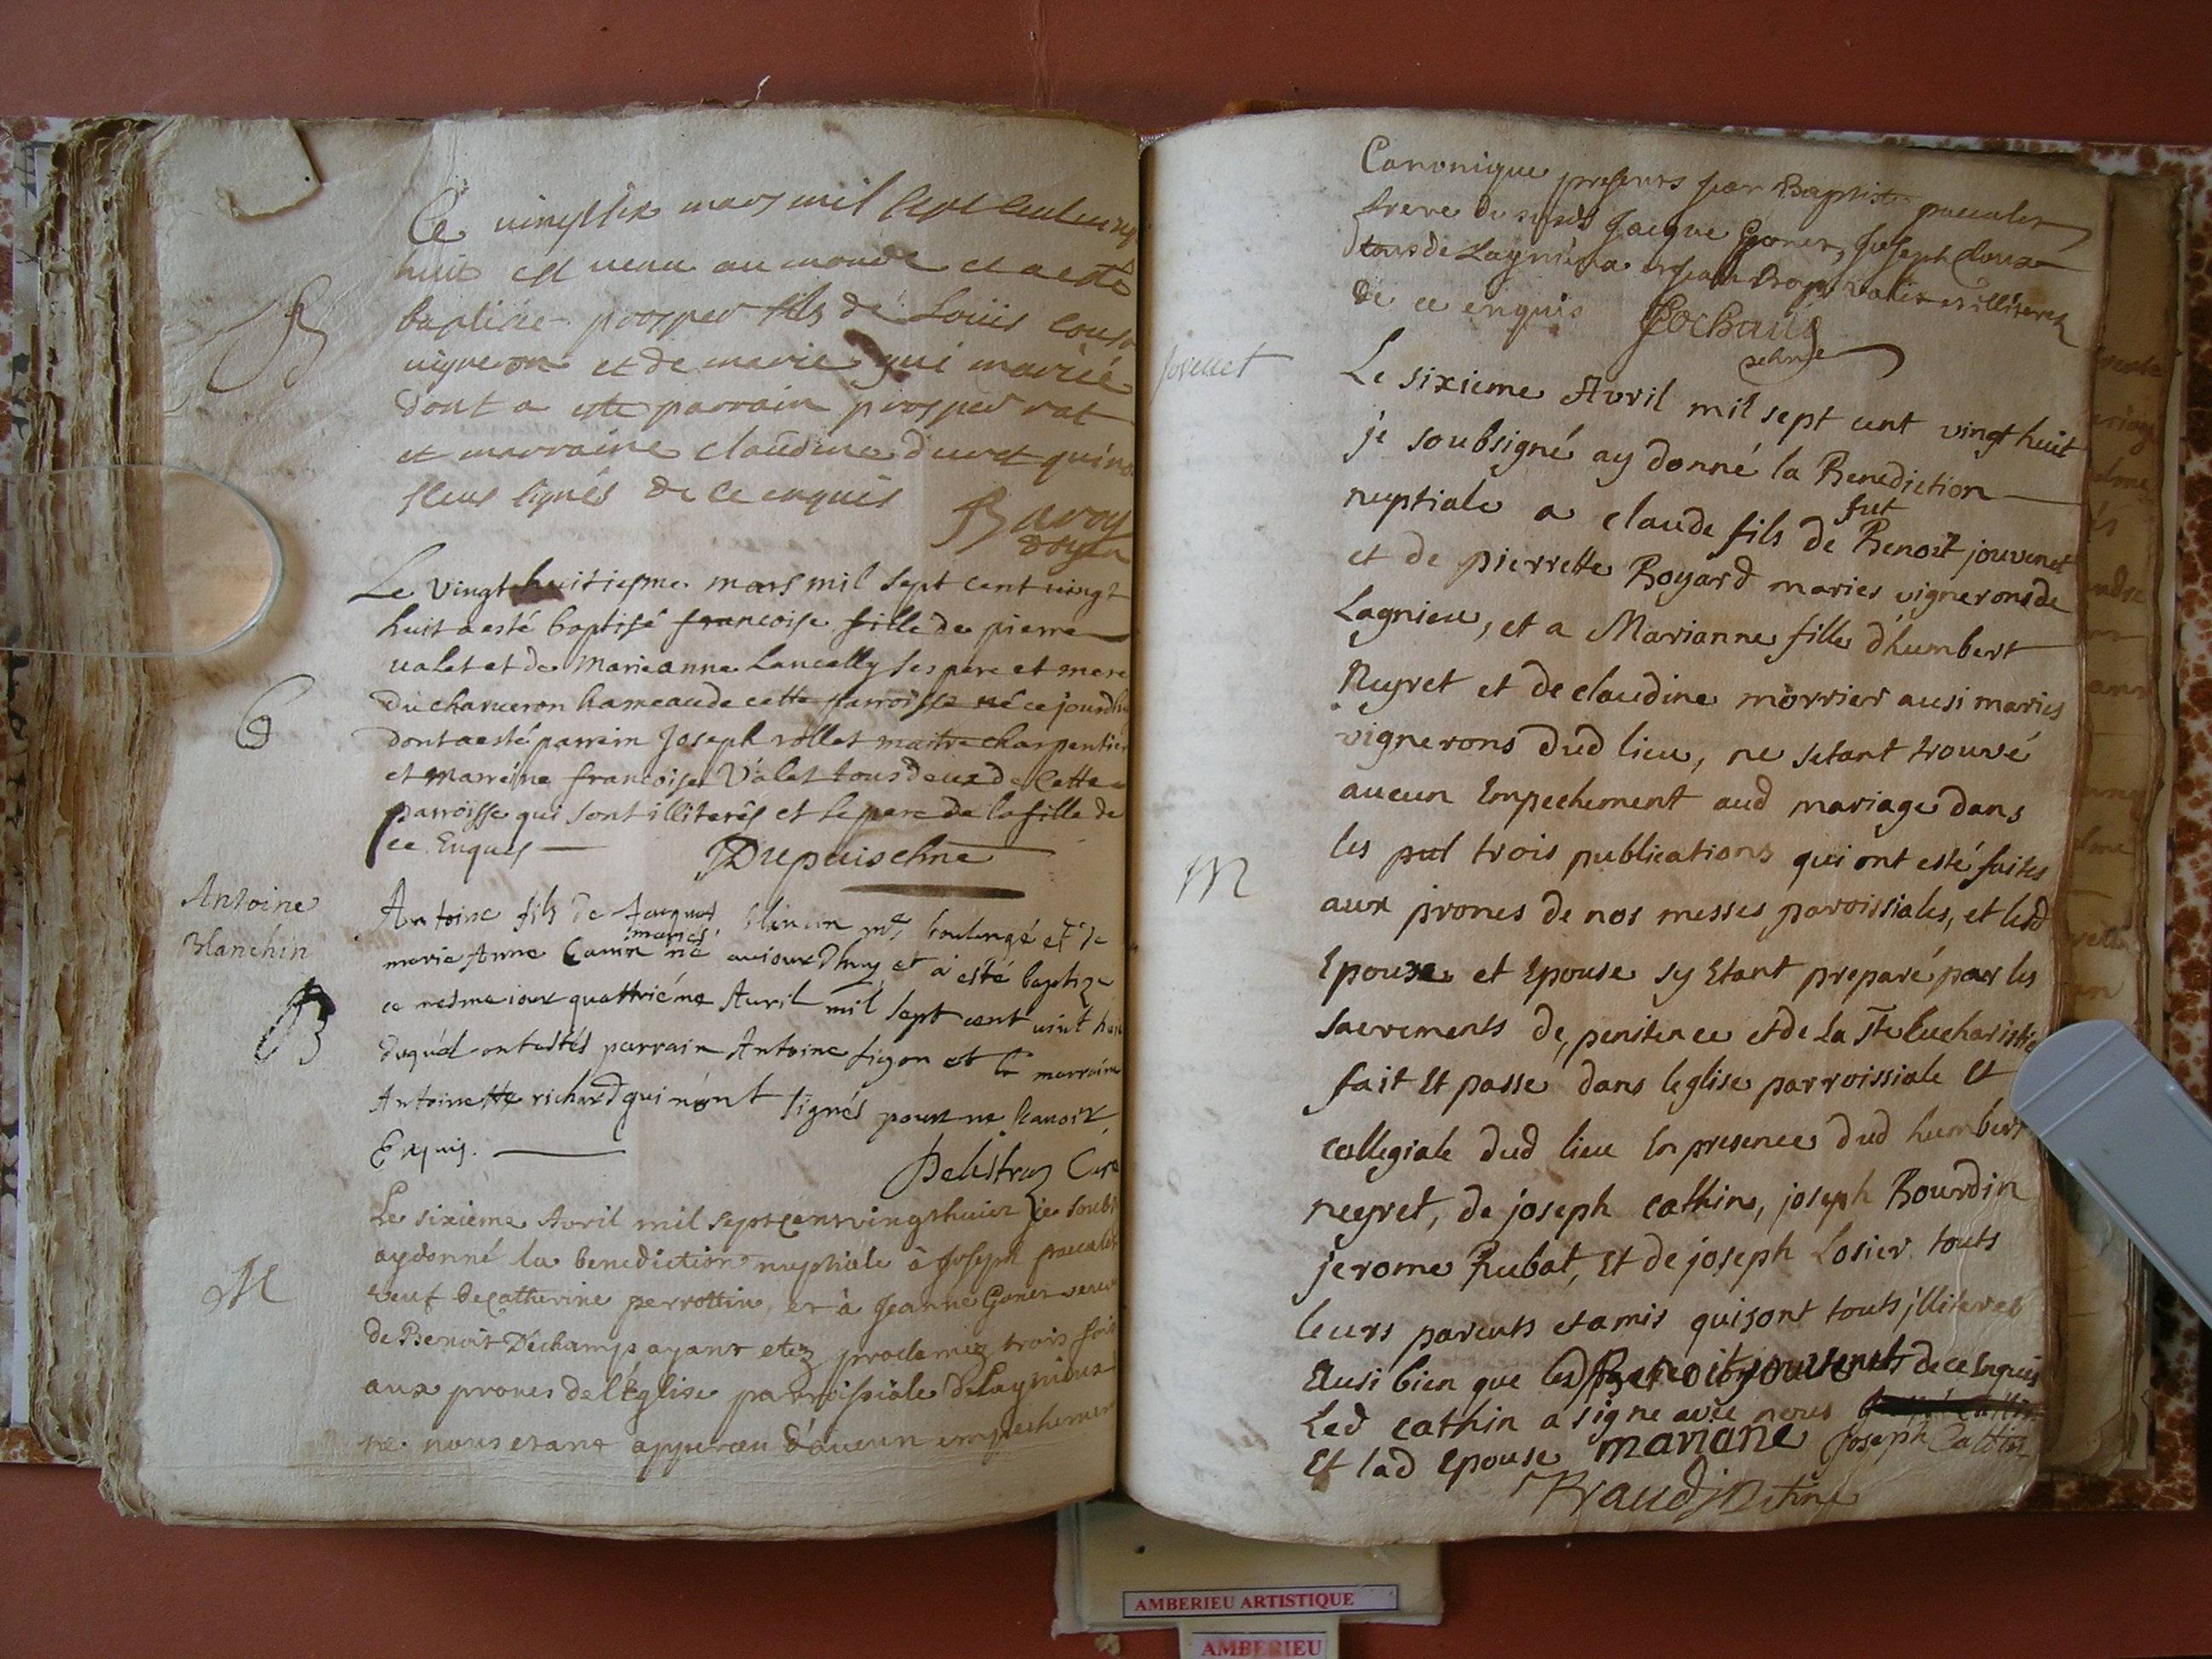 Ce vingt six mars mil sept cent vingt
huit est venu au monde et a esté
baptisé prosper fils de Loüis
vigneron et de marie qui mariés
Dont a esté parrain prosper rat
et marraine claudine duret qui n'ont
signés de ce enquis
Bavoy
doyen
Le vingt huitiesme mars mil sept cent vingt
huit a esté baptisé francoise fille de pierre
valet et de Marieanne Lancelly ses pere et mere
du charveron hameau de cette parroisse né ce jourdhuy
dont a esté parrein Joseph rollet maitre charpentier
et marréine francoise Valet tous deux de Cette
parroisse qui sont illiterés et le pere de la fille de
ce Enques
Dupuis chne
Antoine
Blanchin
B
Antoine fils de Jacques blancin mtre boulengé et de
mariés
marie Anne Cauin né aujourdhuy et a esté baptize
ce mesme iour quattriéme Auril mil sept cent vint huit
duquél ont estés parrain Antoine figon et la marraine
Antoinette richard qui n'ont signés pour ne scauoir
Enquis.
Delestraz Curé
M
Le sixieme Avril mil sept cent vingt huict je soubs
ay donné la benediction nuptiale à Joseph
veuf de Catherine perrottin, et à Jeanne Gonet veuve
de Benoit Dechamps ayant etez proclamez trois fois
aux prones de l'Église parroissiale de Lagnieux
ne nous etant apperceu d'aucun empechement
Canonique presents jean Baptiste
frere du susdt Jacque Gonet, Joseph Cloux
tous de Lagnieu et jean Bapt valet illiterez
de ce enquis Cochaud
chne
jovenet
Le sixieme Avril mil sept cent vingt huit
je soubsigné ay donné la Benediction
fut
nuptiale a claude fils de Benoit jouvenet
et de pierrette Boyard mariés vignerons de
Lagnieu, et a Marianne fille d'humbert
Neyret et de claudine morrier ausi mariés
vignerons dud lieu, ne setant trouvé
aucun Empechement aud mariage dans
M
les pul trois publications qui ont esté faites
aux prones de nos messes paroissiales, et lesd
Epoux et Epouse sy Etant preparé par les
sacrements de penitence et de la Ste Eucharistie
fait Et passe dans leglise parroissiale Et
collegiale dud lieu En presence dud humbert
neyret, de joseph cathin, joseph Bourdin
jerome Rubat, Et de joseph Losier touts
leurs parents et amis qui sont touts illiteres
Ausi bien que led Benoit jouvenet de ce Enquis
Led cathin a signe avec nous
Et lad Epouse mariane Joseph Cattin
Braud
AMBERIEU ARTISTIQUE
AMBERIEU